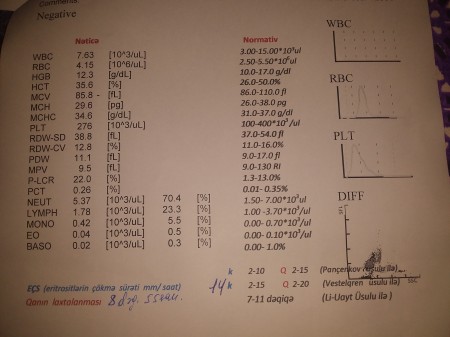 Comments:
Negative
Nəticə Normativ
WBC 7.63 [10^3/uL] 3.00-15.00*10³ul
RBC 4.15 [10^6/uL] 2.50-5.50*10⁶ul
HGB 12.3 [g/dL] 10.0-17.0 g/dl
HCT 35.6 [%] 26.0-50.0%
MCV 85.8 - [fL] 86.0-110.0 fl
MCH 29.6 [pg] 26.0-38.0 pg
MCHC 34.6 [g/dL] 31.0-37.0 g/dl
PLT 276 [10^3/uL] 100-400*10³/ul
RDW-SD 38.8 [fL] 37.0-54.0 fl
RDW-CV 12.8 [%] 11.0-16.0%
PDW 11.1 [fL] 9.0-17.0 fl
MPV 9.5 [fL] 9.0-130 Rl
P-LCR 22.0 [%] 1.3-13.0%
PCT 0.26 [%] 0.01- 0.35%
NEUT 5.37 [10^3/uL] 70.4 [%] 1.50- 7.00*10³/ul
LYMPH 1.78 [10^3/uL] 23.3 [%] 1.00 -3.70*10³/ul
MONO 0.42 [10^3/uL] 5.5 [%] 0.00- 0.70*10³/ul
EO 0.04 [10^3/uL] 0.5 [%] 0.00- 0.10*10³/ul
BASO 0.02 [10^3/uL] 0.3 [%] 0.00- 1.0%
WBC
RBC
PLT
DIFF
k 2-10 Q 2-15 (Pançenkov Üsulu ilə)
EÇS (eritrositlərin çökmə sürəti mm/saat) 14 k 2-15 Q 2-20 (Vestelqren üsulu ilə)
Qanın laxtalanması 8 dəq. 55 san. 7-11 dəqiqə (Li-Uayt Üsulu ilə )